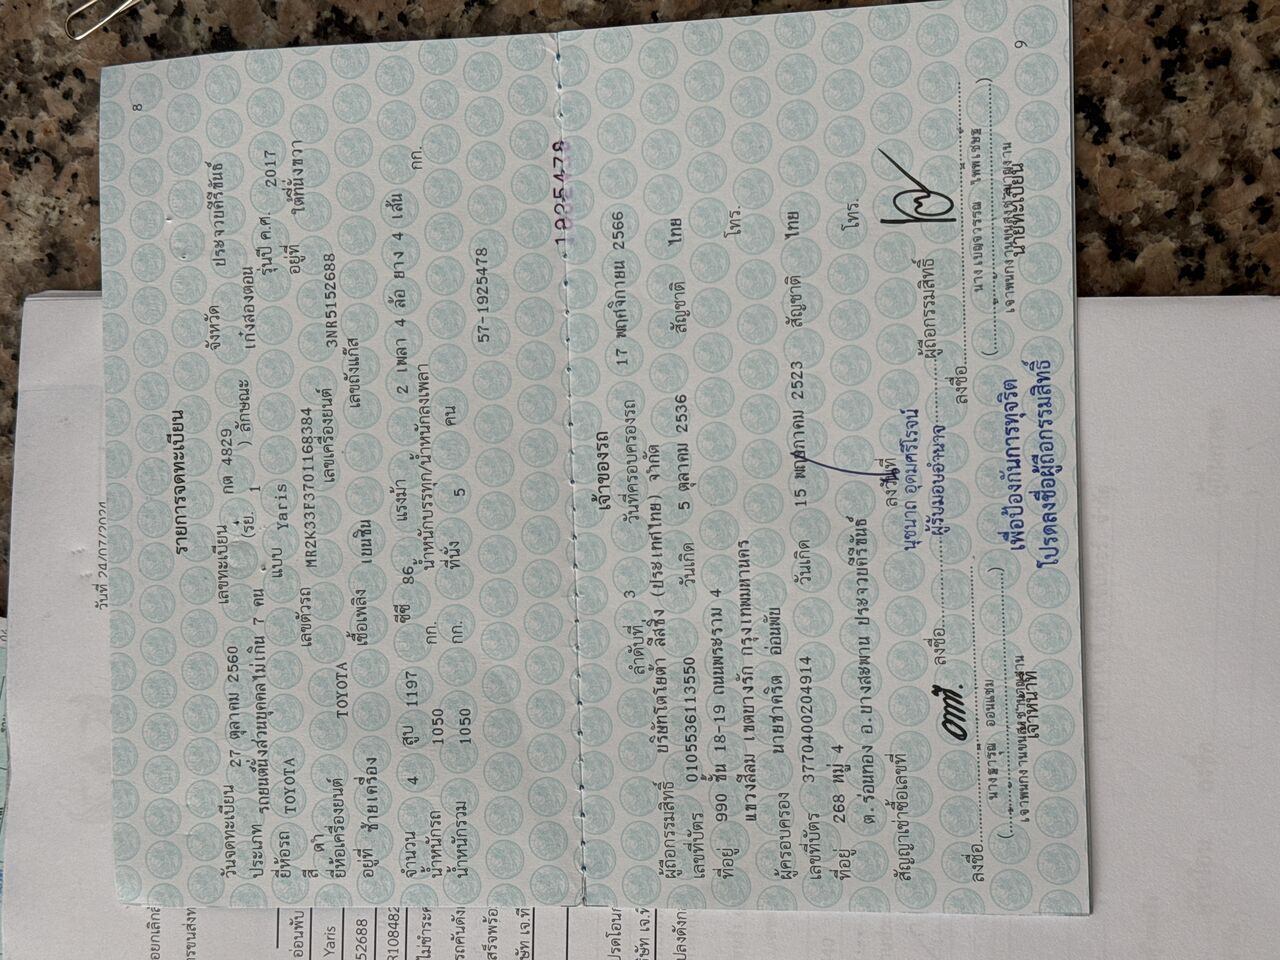 8
รายการจดทะเบียน
วันจดทะเบียน 27 ตุลาคม 2560 เลขทะเบียน กต 4829 จังหวัด ประจวบคีรีขันธ์
ประเภท รถยนต์นั่งส่วนบุคคลไม่เกิน 7 คน (รย. 1 ) ลักษณะ เก๋งสองตอน
ยี่ห้อรถ TOYOTA แบบ Yaris รุ่นปี ค.ศ. 2017
สี ดำ เลขตัวรถ MR2K33F3701168384 อยู่ที่ ใต้ที่นั่งขวา
ยี่ห้อเครื่องยนต์ TOYOTA เลขเครื่องยนต์ 3NR5152688
อยู่ที่ ซ้ายเครื่อง เชื้อเพลิง เบนซิน เลขถังแก๊ส
จำนวน 4 สูบ 1197 ซีซี 86 แรงม้า 2 เพลา 4 ล้อ ยาง 4 เส้น
น้ำหนักรถ 1050 กก. น้ำหนักบรรทุก/น้ำหนักลงเพลา กก.
น้ำหนักรวม 1050 กก. ที่นั่ง 5 คน
57-1925478
1925478
เจ้าของรถ
ลำดับที่ 3 วันที่ครอบครองรถ 17 พฤศจิกายน 2566
ผู้ถือกรรมสิทธิ์ บริษัทโตโยต้า ลีสซิ่ง (ประเทศไทย) จำกัด
เลขที่บัตร 0105536113550 วันเกิด 5 ตุลาคม 2536 สัญชาติ ไทย
ที่อยู่ 990 ชั้น 18-19 ถนนพระราม 4
แขวงสีลม เขตบางรัก กรุงเทพมหานคร โทร.
ผู้ครอบครอง นายชาคริต อ่อนพับ
เลขที่บัตร 3770400204914 วันเกิด 15 พฤษภาคม 2523 สัญชาติ ไทย
ที่อยู่ 268 หมู่ 4
ต.ร่อนทอง อ.บางสะพาน ประจวบคีรีขันธ์ โทร.
สัญญาเช่าซื้อเลขที่ ลงวันที่
นุชนาถ อุดมศรีโรจน์
ผู้รับมอบอำนาจ
ลงชื่อ ผู้ถือกรรมสิทธิ์
ลงชื่อ ลงชื่อ
เจ้าหน้าที่
นายทะเบียน
เพื่อป้องกันการทุจริต
โปรดลงชื่อผู้ถือกรรมสิทธิ์
9
อ่อนพับ
Yaris
52688